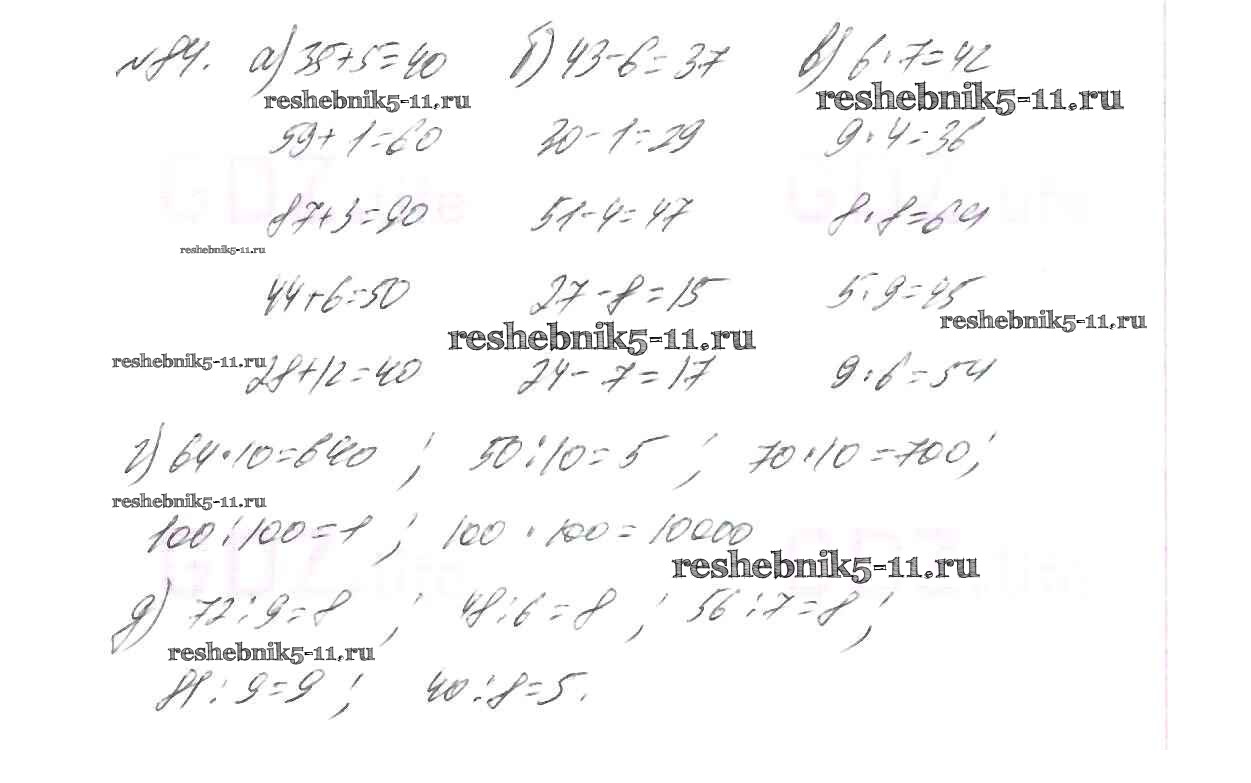 №84. а) 35+5=40 б) 43-6=37 в) 6·7=42
reshebnik5-11.ru reshebnik5-11.ru
59+1=60 30-1=29 9·4=36
87+3=90 51-4=47 8·8=64
reshebnik5-11.ru
44+6=50 27-8=15 5·9=45
reshebnik5-11.ru reshebnik5-11.ru
reshebnik5-11.ru
28+12=40 24-7=17 9·6=54
г) 64·10=640 ; 50:10=5 ; 70·10=700;
reshebnik5-11.ru
100:100=1 ; 100·100=10000
reshebnik5-11.ru
д) 72:9=8 ; 48:6=8 ; 56:7=8 ;
reshebnik5-11.ru
81:9=9 ; 40:8=5.